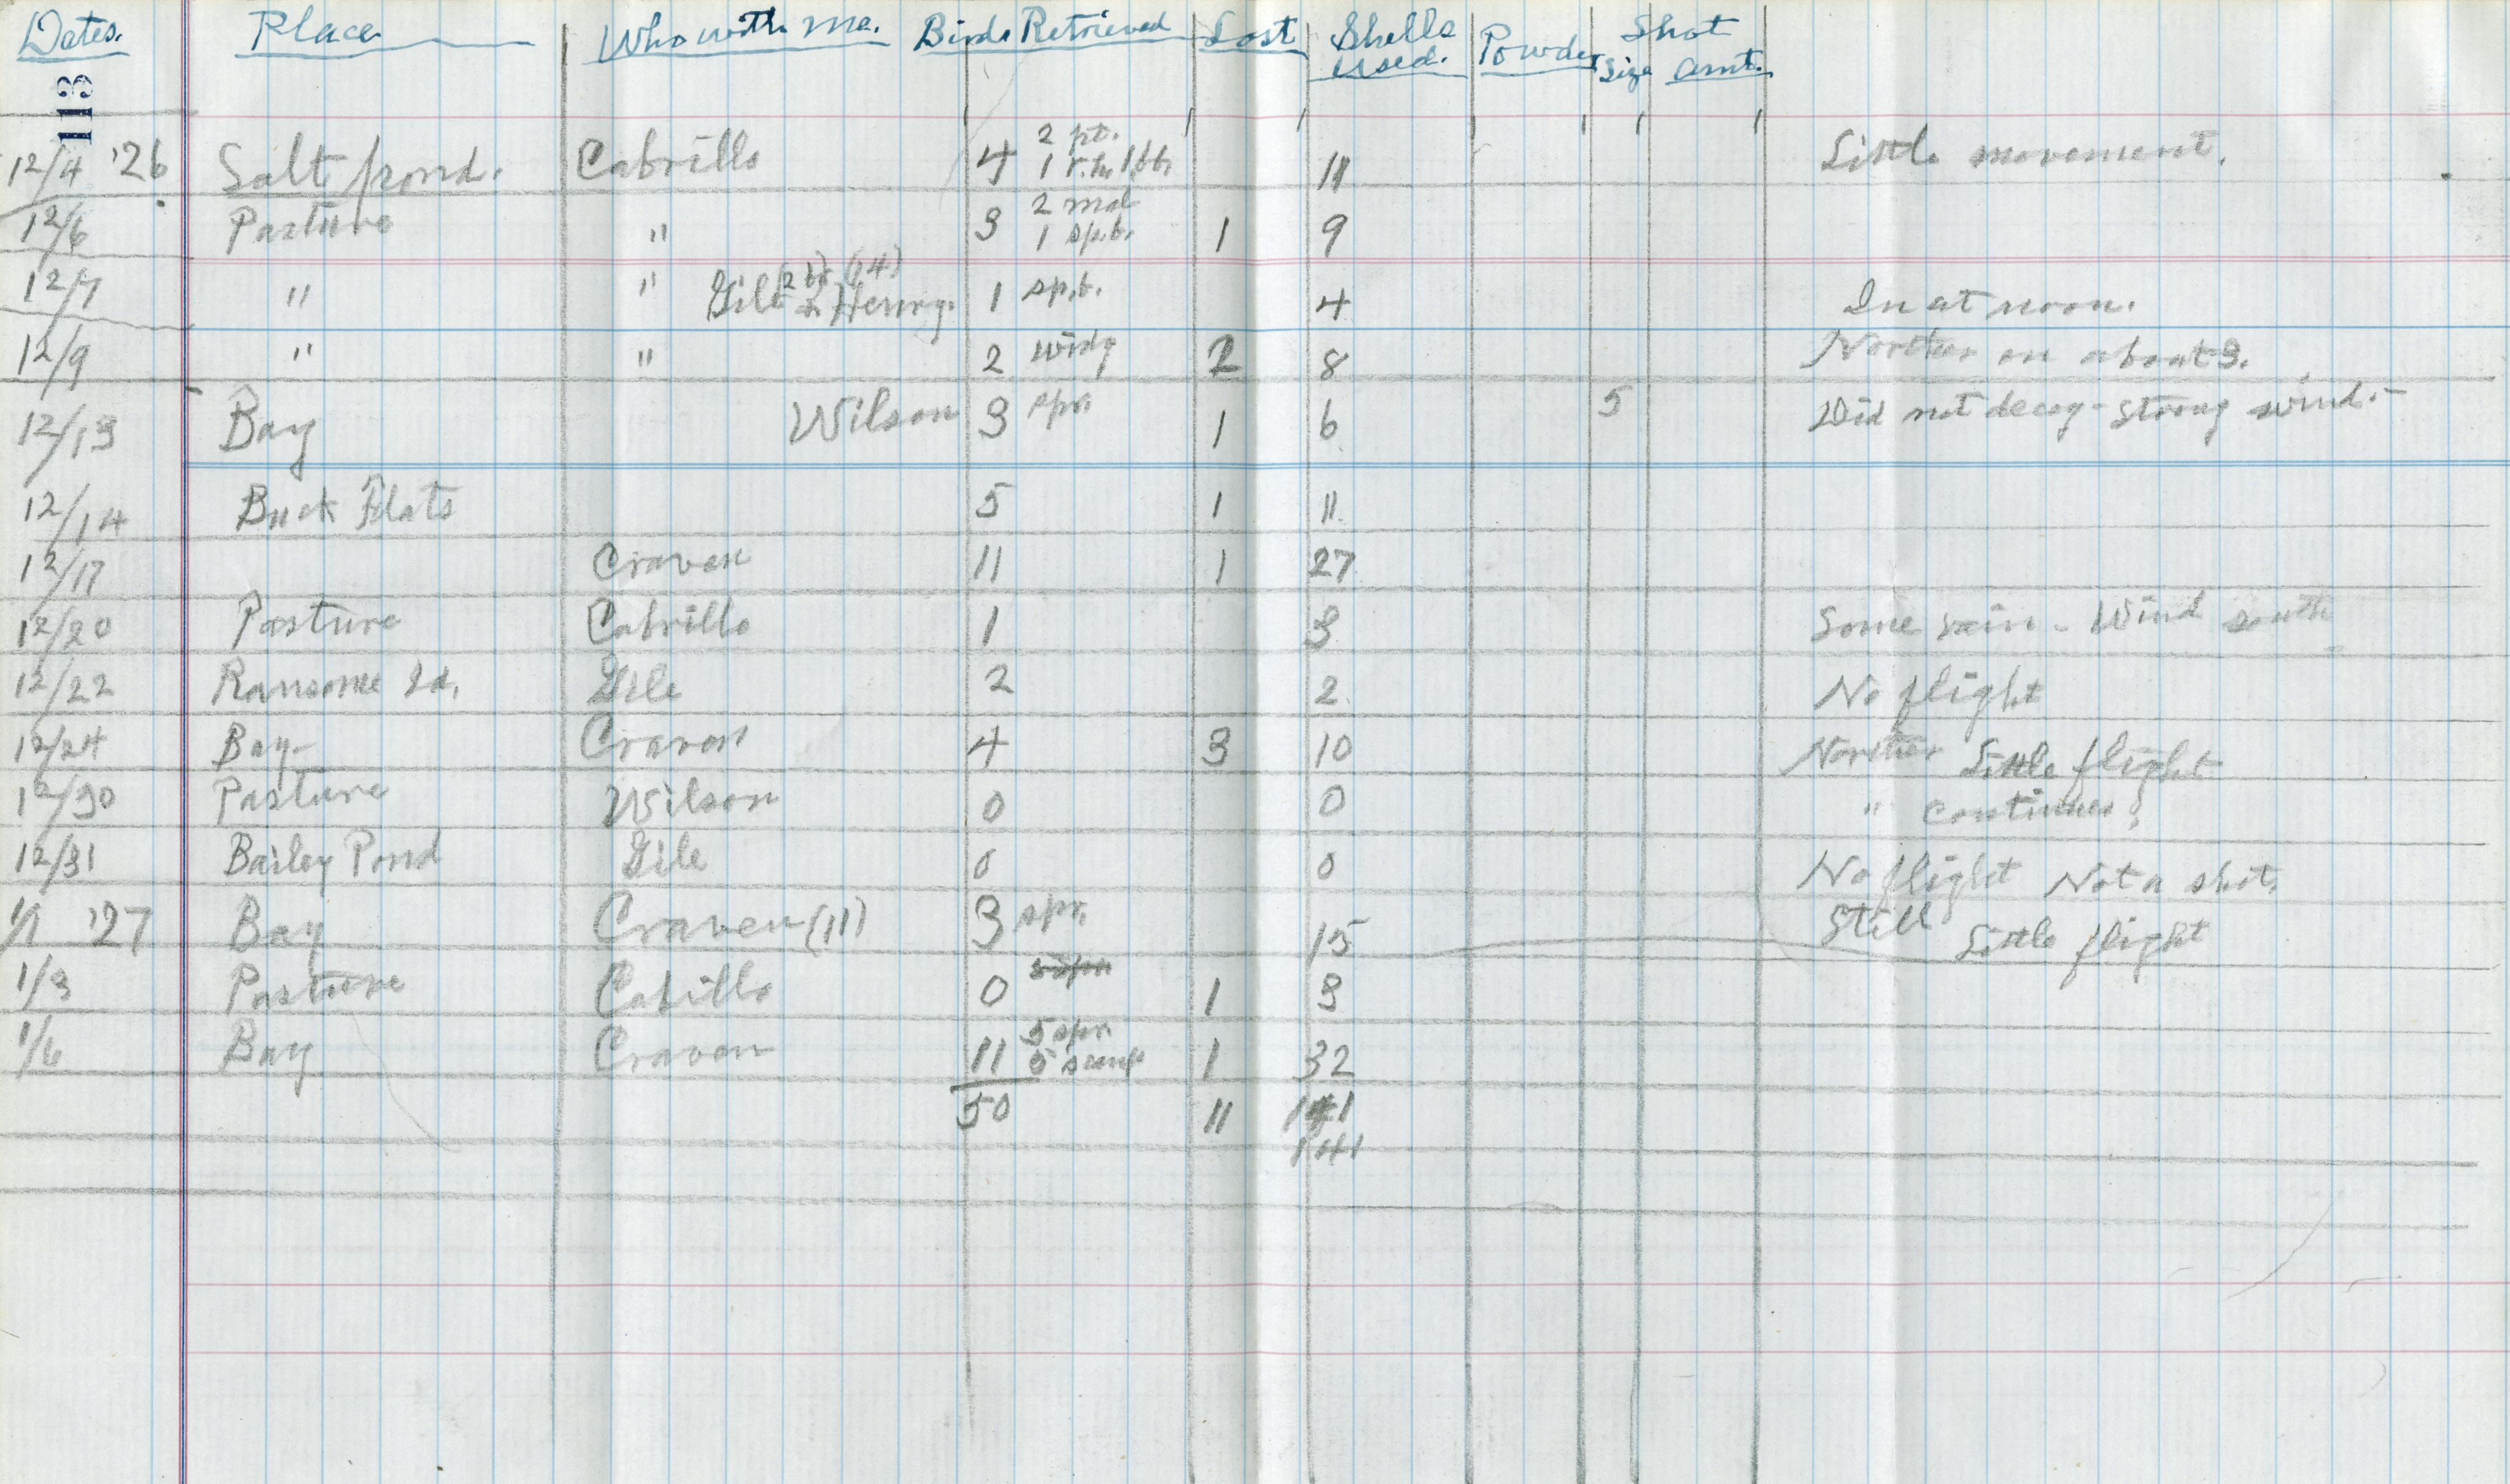 Dates. Place Who with me. Birds Retrieved Lost Shells used. Powder Shot size amt.
113
12/4 '26 Salt pond. Cabrillo 4 2 pt. 1 r.h. 1 bb. 11 Little movement.
12/6 Pasture " 3 2 mal 1 sp.b. 1 9
12/7 " " Gile & Henry. (14) 1 sp.b. 4 In at noon.
12/9 " " 2 widg 2 8 Norther on about 3.
12/13 Bay Wilson 3 spr. 1 6 5 Did not decoy - Strong wind. -
12/14 Buck Flats 5 1 11.
12/17 Craven 11 1 27
12/20 Pasture Cabrillo 1 3 Some rain - Wind south
12/22 Ransome Id. Gile 2 2. No flight
12/24 Bay- Craven 4 3 10 Norther Little flight
12/30 Pasture Wilson 0 0 " continues.
12/31 Bailey Pond Gile 0 0 No flight Not a shot.
1/1 '27 Bay Craven (11) 3 spr. 15 Still Little flight
1/3 Pasture Cabillo 0 1 3
1/6 Bay Craven 11 5 spr. 5 scaup 1 32
50 11 141
141